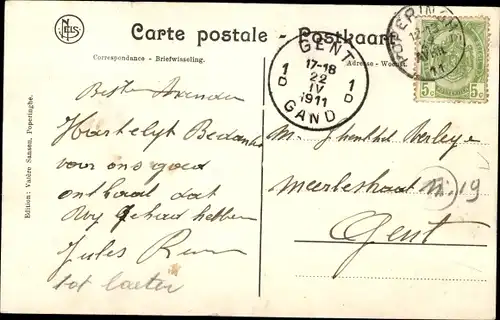 NELS
Carte postale - Postkaart
Correspondance - Briefwisseling.
Adresse - Woonst.
POPERINGHE
5c 5c
GENT
1 D 17-18 22 IV 1911 1 D
GAND
Edition: Valère Sansen, Poperinghe.
Beste
Hartelyk
voor ons goed
onthaal dat
Wy gehad hebben
Jules
tot laeter
M.
n. 19
Gent